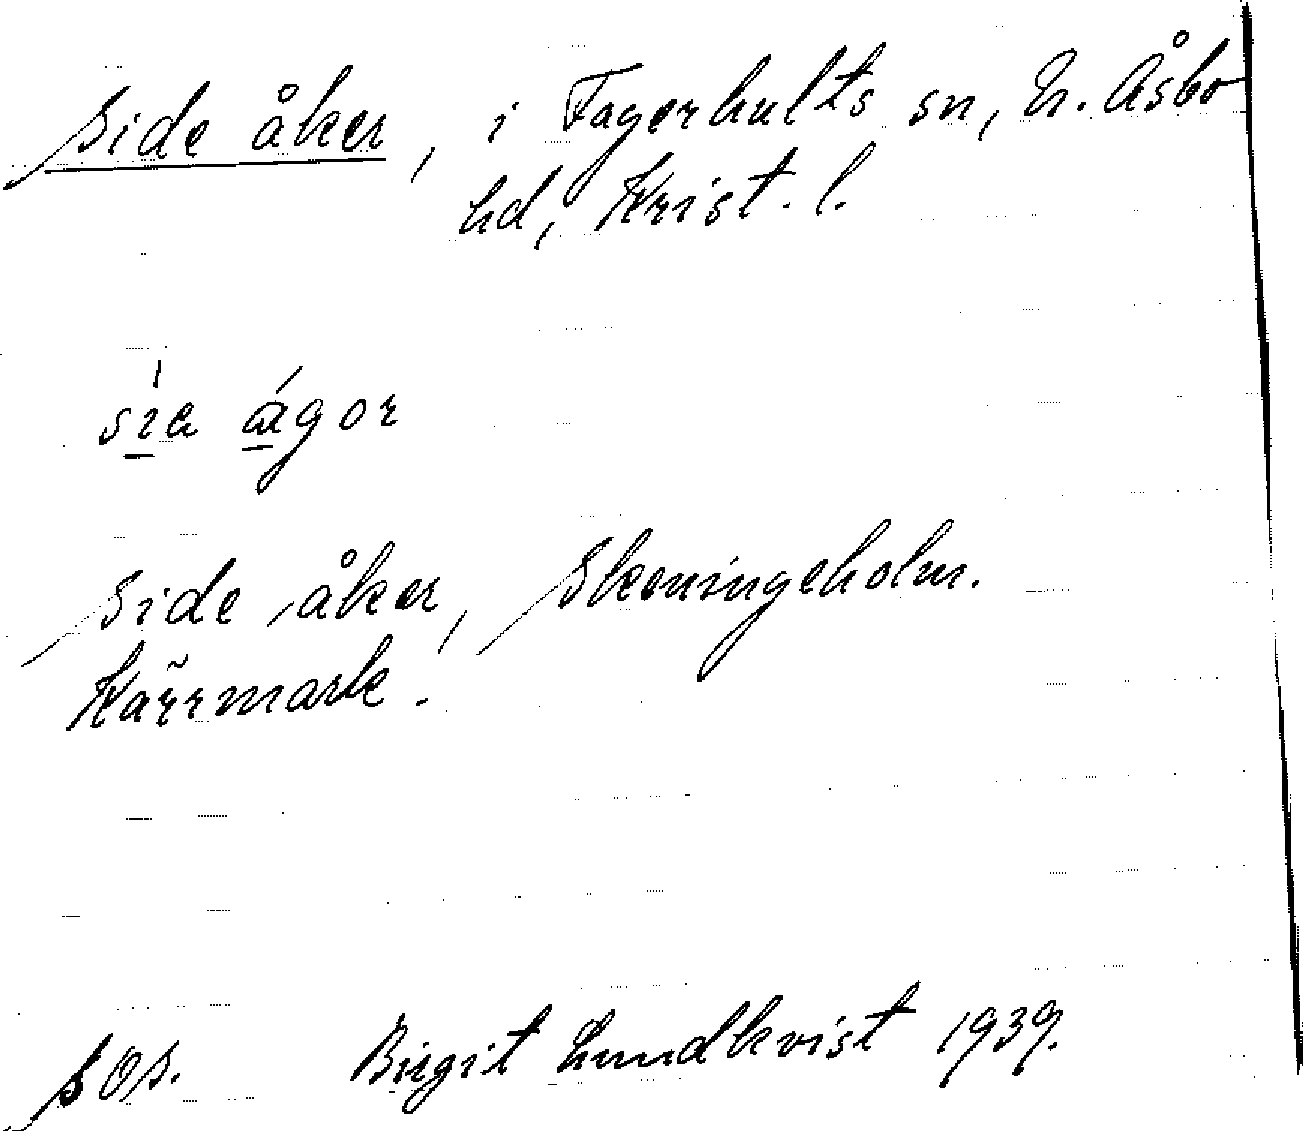 Side åker, i Fagerhults sn, N. Åsbo
hd, Krist. l.
sıa ágor
Side åker, Skeningeholm.
Kärrmark.
SOS. Birgit Lundkvist 1939.